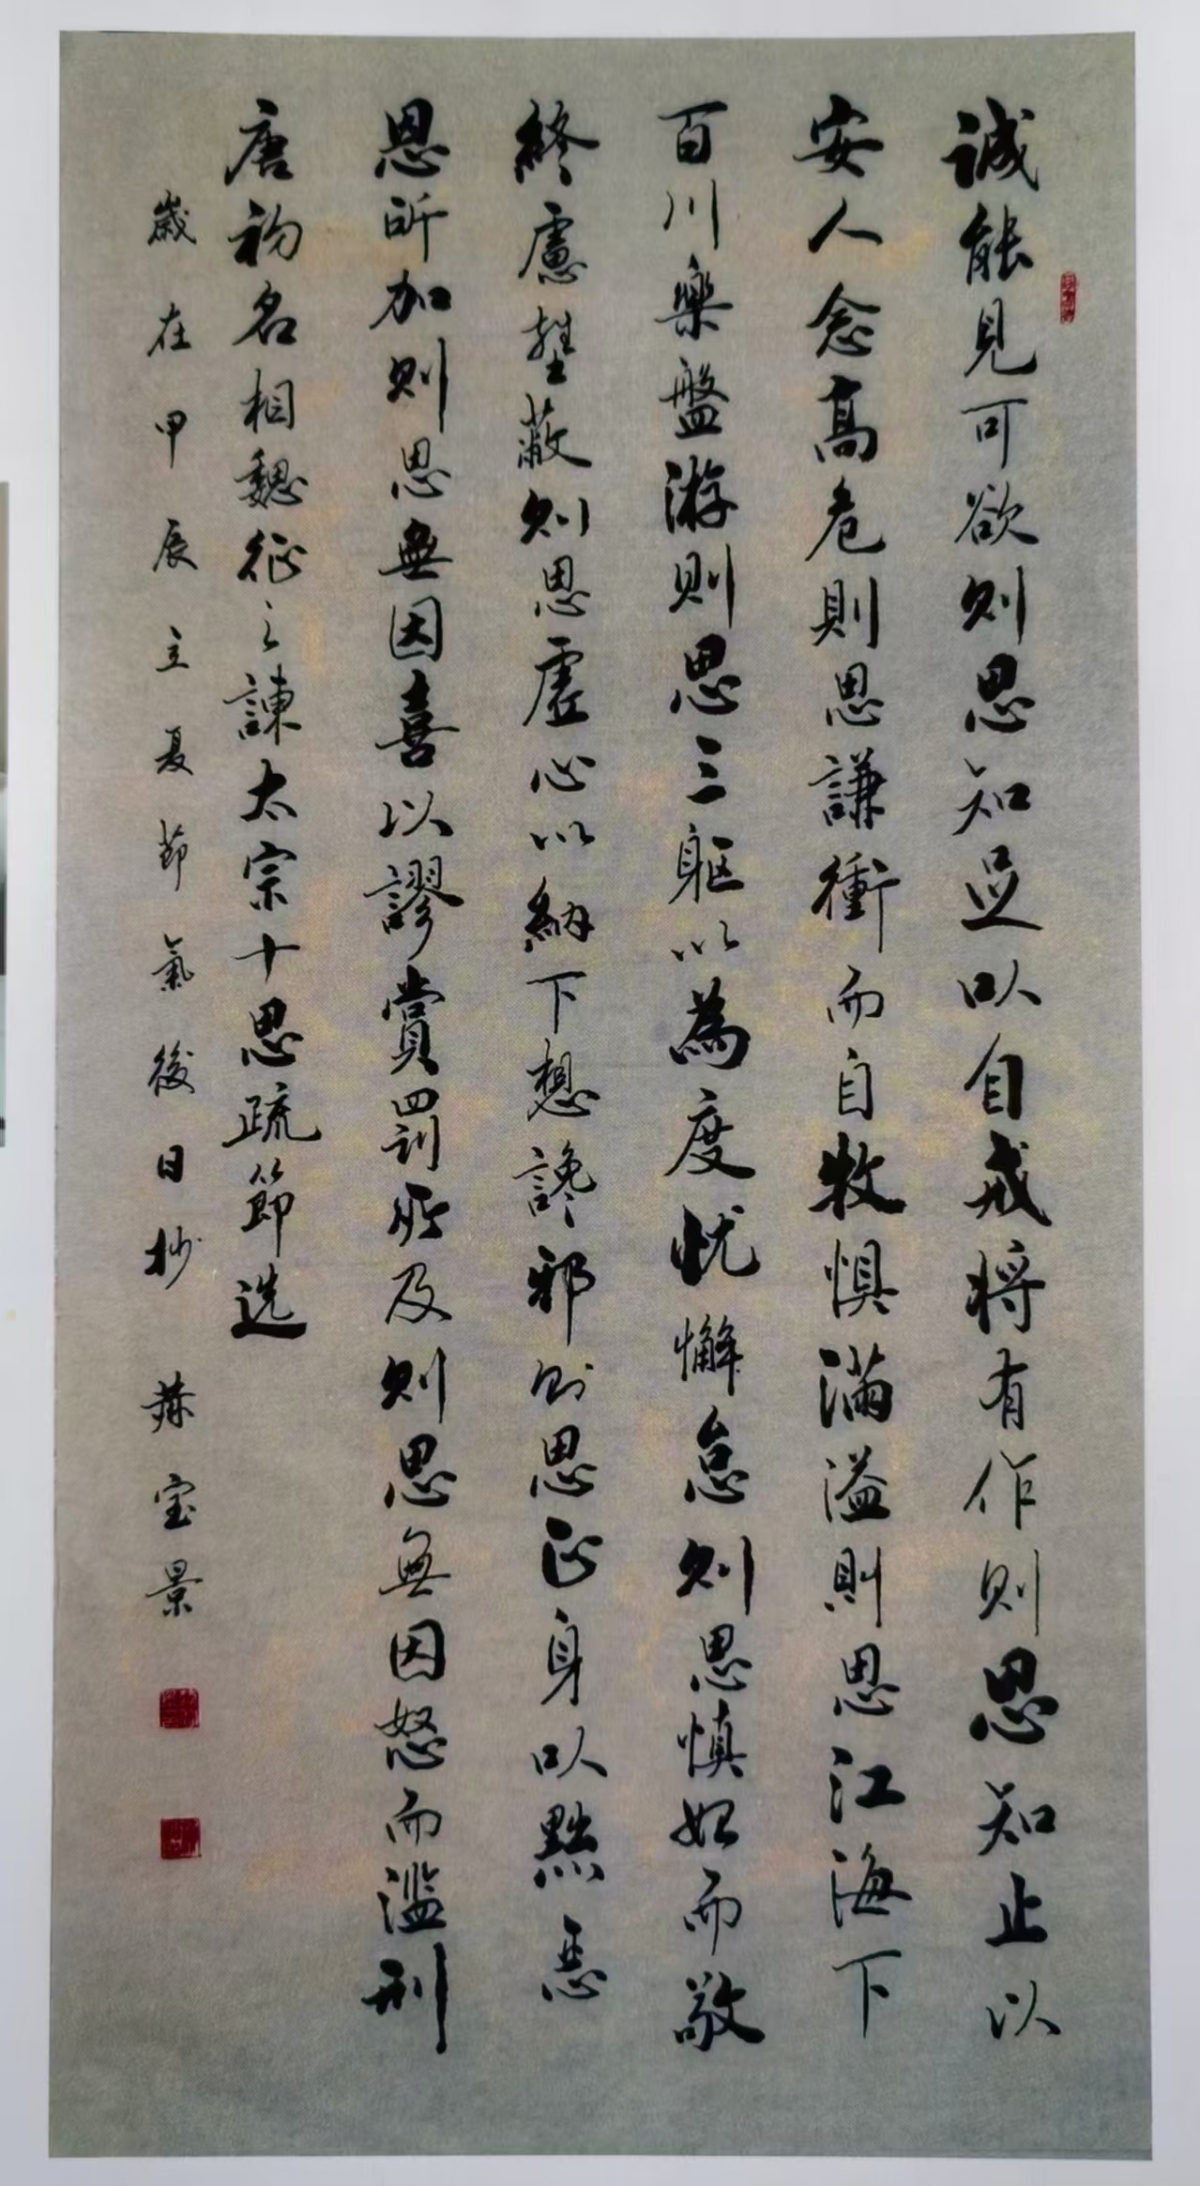 誠能見可欲则思知足以自戒将有作则思知止以
安人念高危則思謙衝而自牧惧满溢則思江海下
百川樂盤游则思三躯以為度忧懈怠则思慎始而敬
終慮壅蔽则思虚心以納下想諗邪则思正身以黜恶
恩所加则思無因喜以謬賞罰所及则思無因怒而滥刑
唐初名相魏征之諫太宗十思疏節选
歲在甲辰立夏節氣後日抄 赫宝景